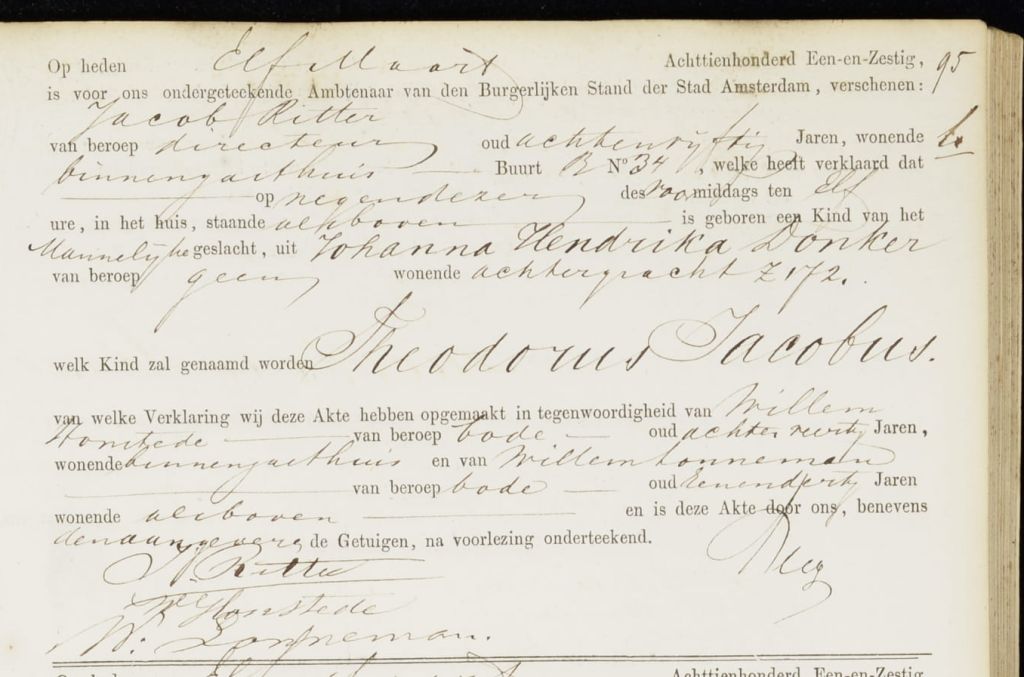 Op heden Elf Maart Achttienhonderd Een-en-Zestig, 95
is voor ons ondergeteekende Ambtenaar van den Burgerlijken Stand der Stad Amsterdam, verschenen:
Jacob Ritter
van beroep directeur oud achtenvyftig Jaren, wonende
binnengasthuis Buurt B No 34, welke heeft verklaard dat
op negendezer des voormiddags ten Elf
ure, in het huis, staande alsboven is geboren een Kind van het
Mannelijke geslacht, uit Johanna Hendrika Donker
van beroep geen wonende achtergracht Z 172.
welk Kind zal genaamd worden Theodorus Jacobus.
van welke Verklaring wij deze Akte hebben opgemaakt in tegenwoordigheid van Willem
Honstede van beroep bode oud Jaren,
wonende binnengasthuis en van Willem Lonneman
van beroep bode oud Eenendertig Jaren
wonende alsboven en is deze Akte door ons, benevens
den aangever & de Getuigen, na voorlezing onderteekend.
J. Ritter
W Honstede
W. Lonneman.
Achttienhonderd Een-en-Zestig